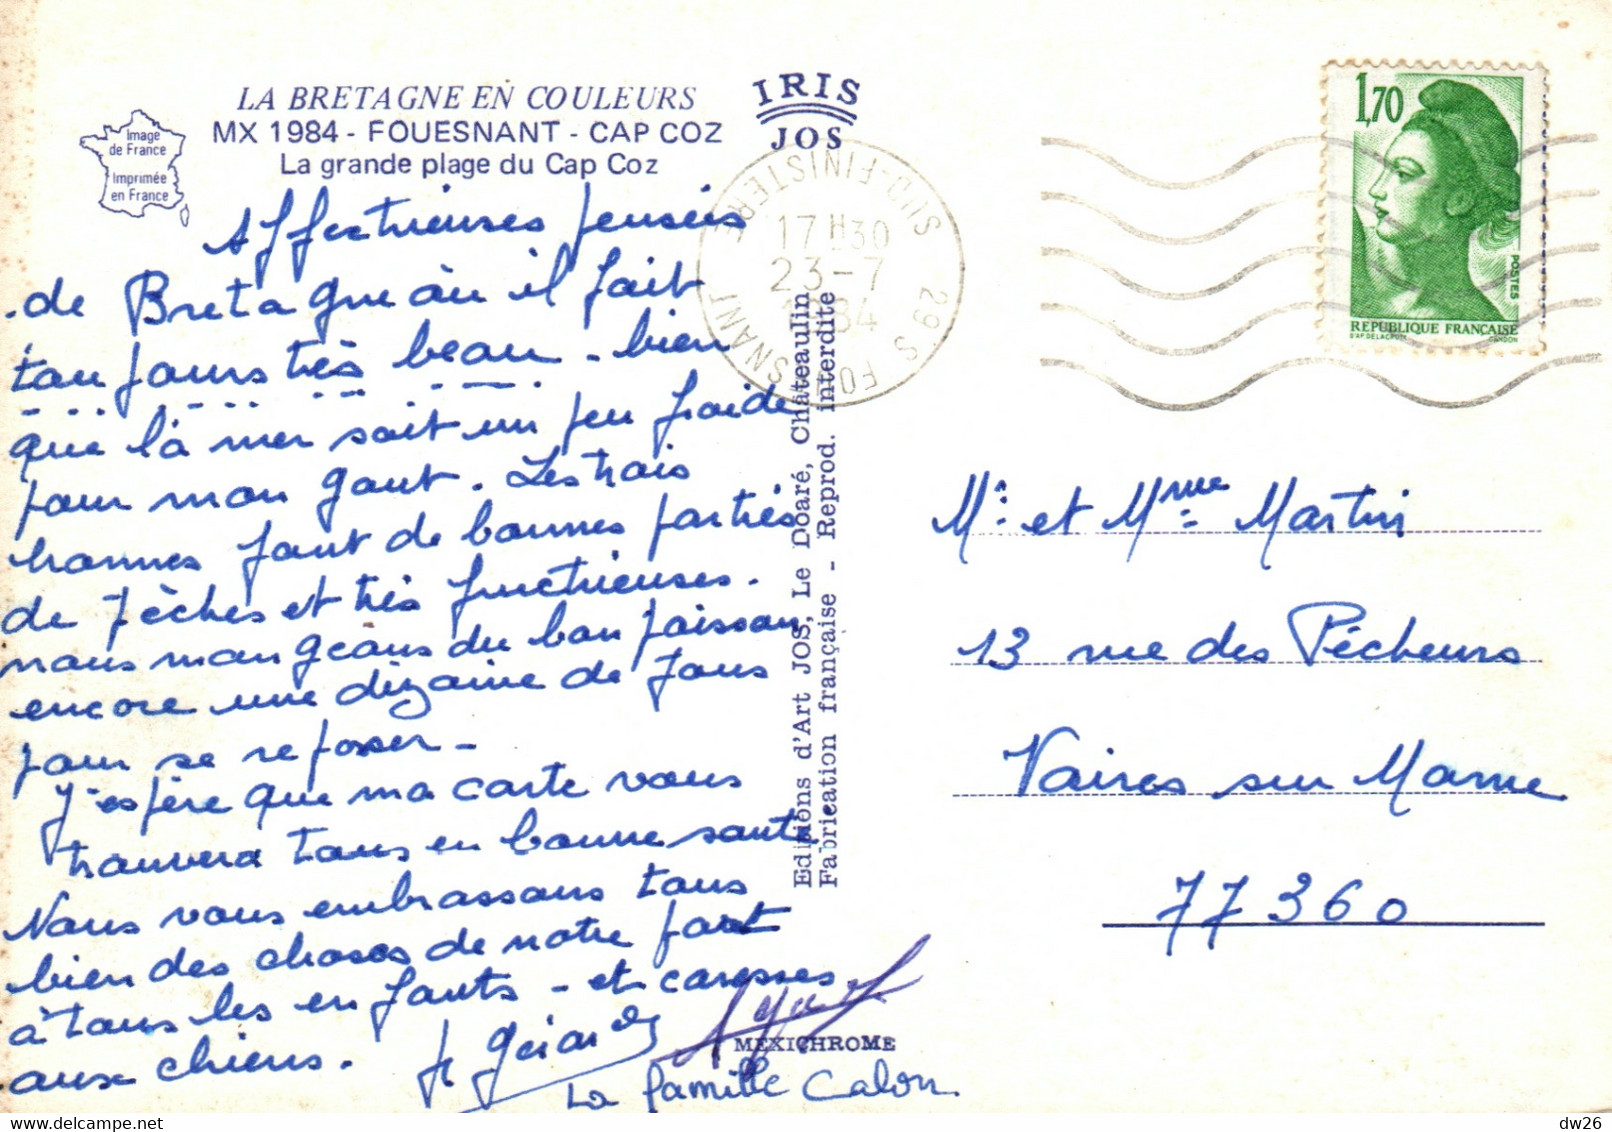 LA BRETAGNE EN COULEURS
MX 1984 - FOUESNANT - CAP COZ
La grande plage du Cap Coz
Image
de France
Imprimée
en France
IRIS
JOS
Affectueuses pensées
de Bretagne où il fait
toujours très beau - bien
que la mer soit un peu froide
pour mon goût. Les trois
hommes font de bonnes parties
de pêches et très fructueuses.
nous mangeons du bon poisson
encore une dizaine de jours
pour se reposer -
J'espère que ma carte vous
trouvera tous en bonne santé
Nous vous embrassons tous
bien des choses de notre part
à tous les enfants - et caresses
aux chiens.
Gérard
La famille Calon
Editions d'Art JOS, Le Doaré, Châteaulin
Fabrication française - Reprod. interdite
MEXICHROME
29 S FOUESNANT
SUD-FINISTERE
17H30
23-7
1984
1,70
POSTES
REPUBLIQUE FRANÇAISE
D'AP. DELACROIX
GANDON
Mr. et Mme Martin
13 rue des Pêcheurs
Vaires sur Marne
77360
dw26